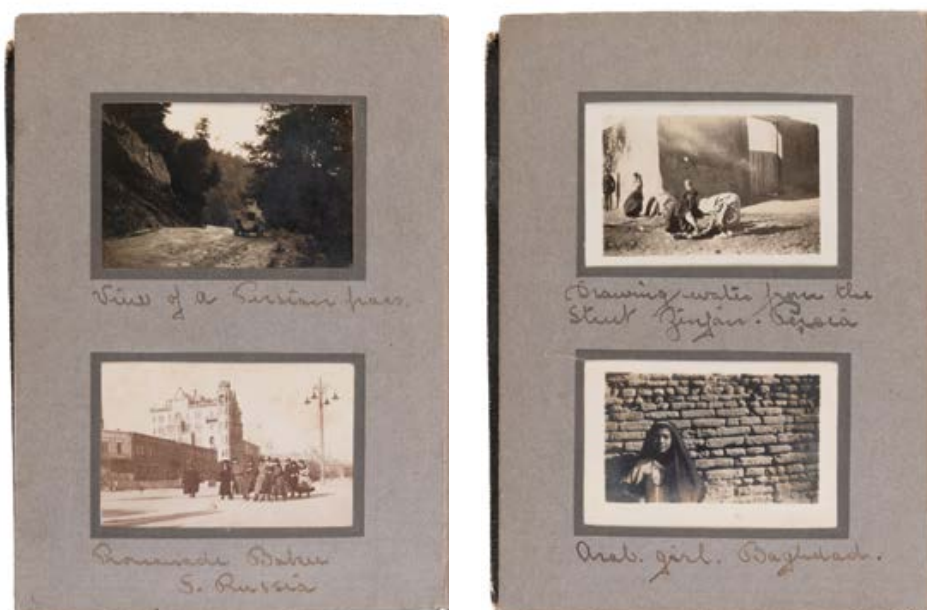 View of a Persian pass.
Promenade Baku
S. Russia
Drawing water from the
Street Zinjan. Persia
Arab. girl. Baghdad.